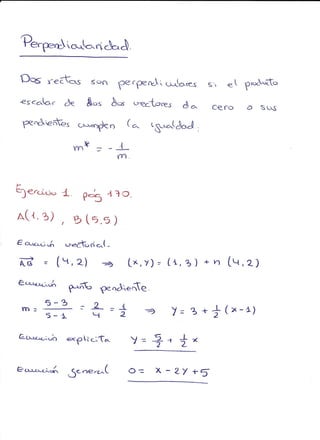 Perpendicularidad.
Dos rectas son perpendiculares si el producto
escalar de sus dos vectores da cero o sus
pendientes cumplen la igualdad:
m* = - 1/m
Ejercicio 1. pág 170.
A(1,3), B(5,5)
Ecuación vectorial.
AB = (4,2) ⇒ (x,y) = (1,3) + n (4,2)
Ecuación punto pendiente
m = 5-3/5-1 = 2/4 = 1/2 ⇒ y = 3 + 1/2 (x-1)
Ecuación explicita y = 5/2 + 1/2 x
Ecuación general 0 = x - 2y + 5